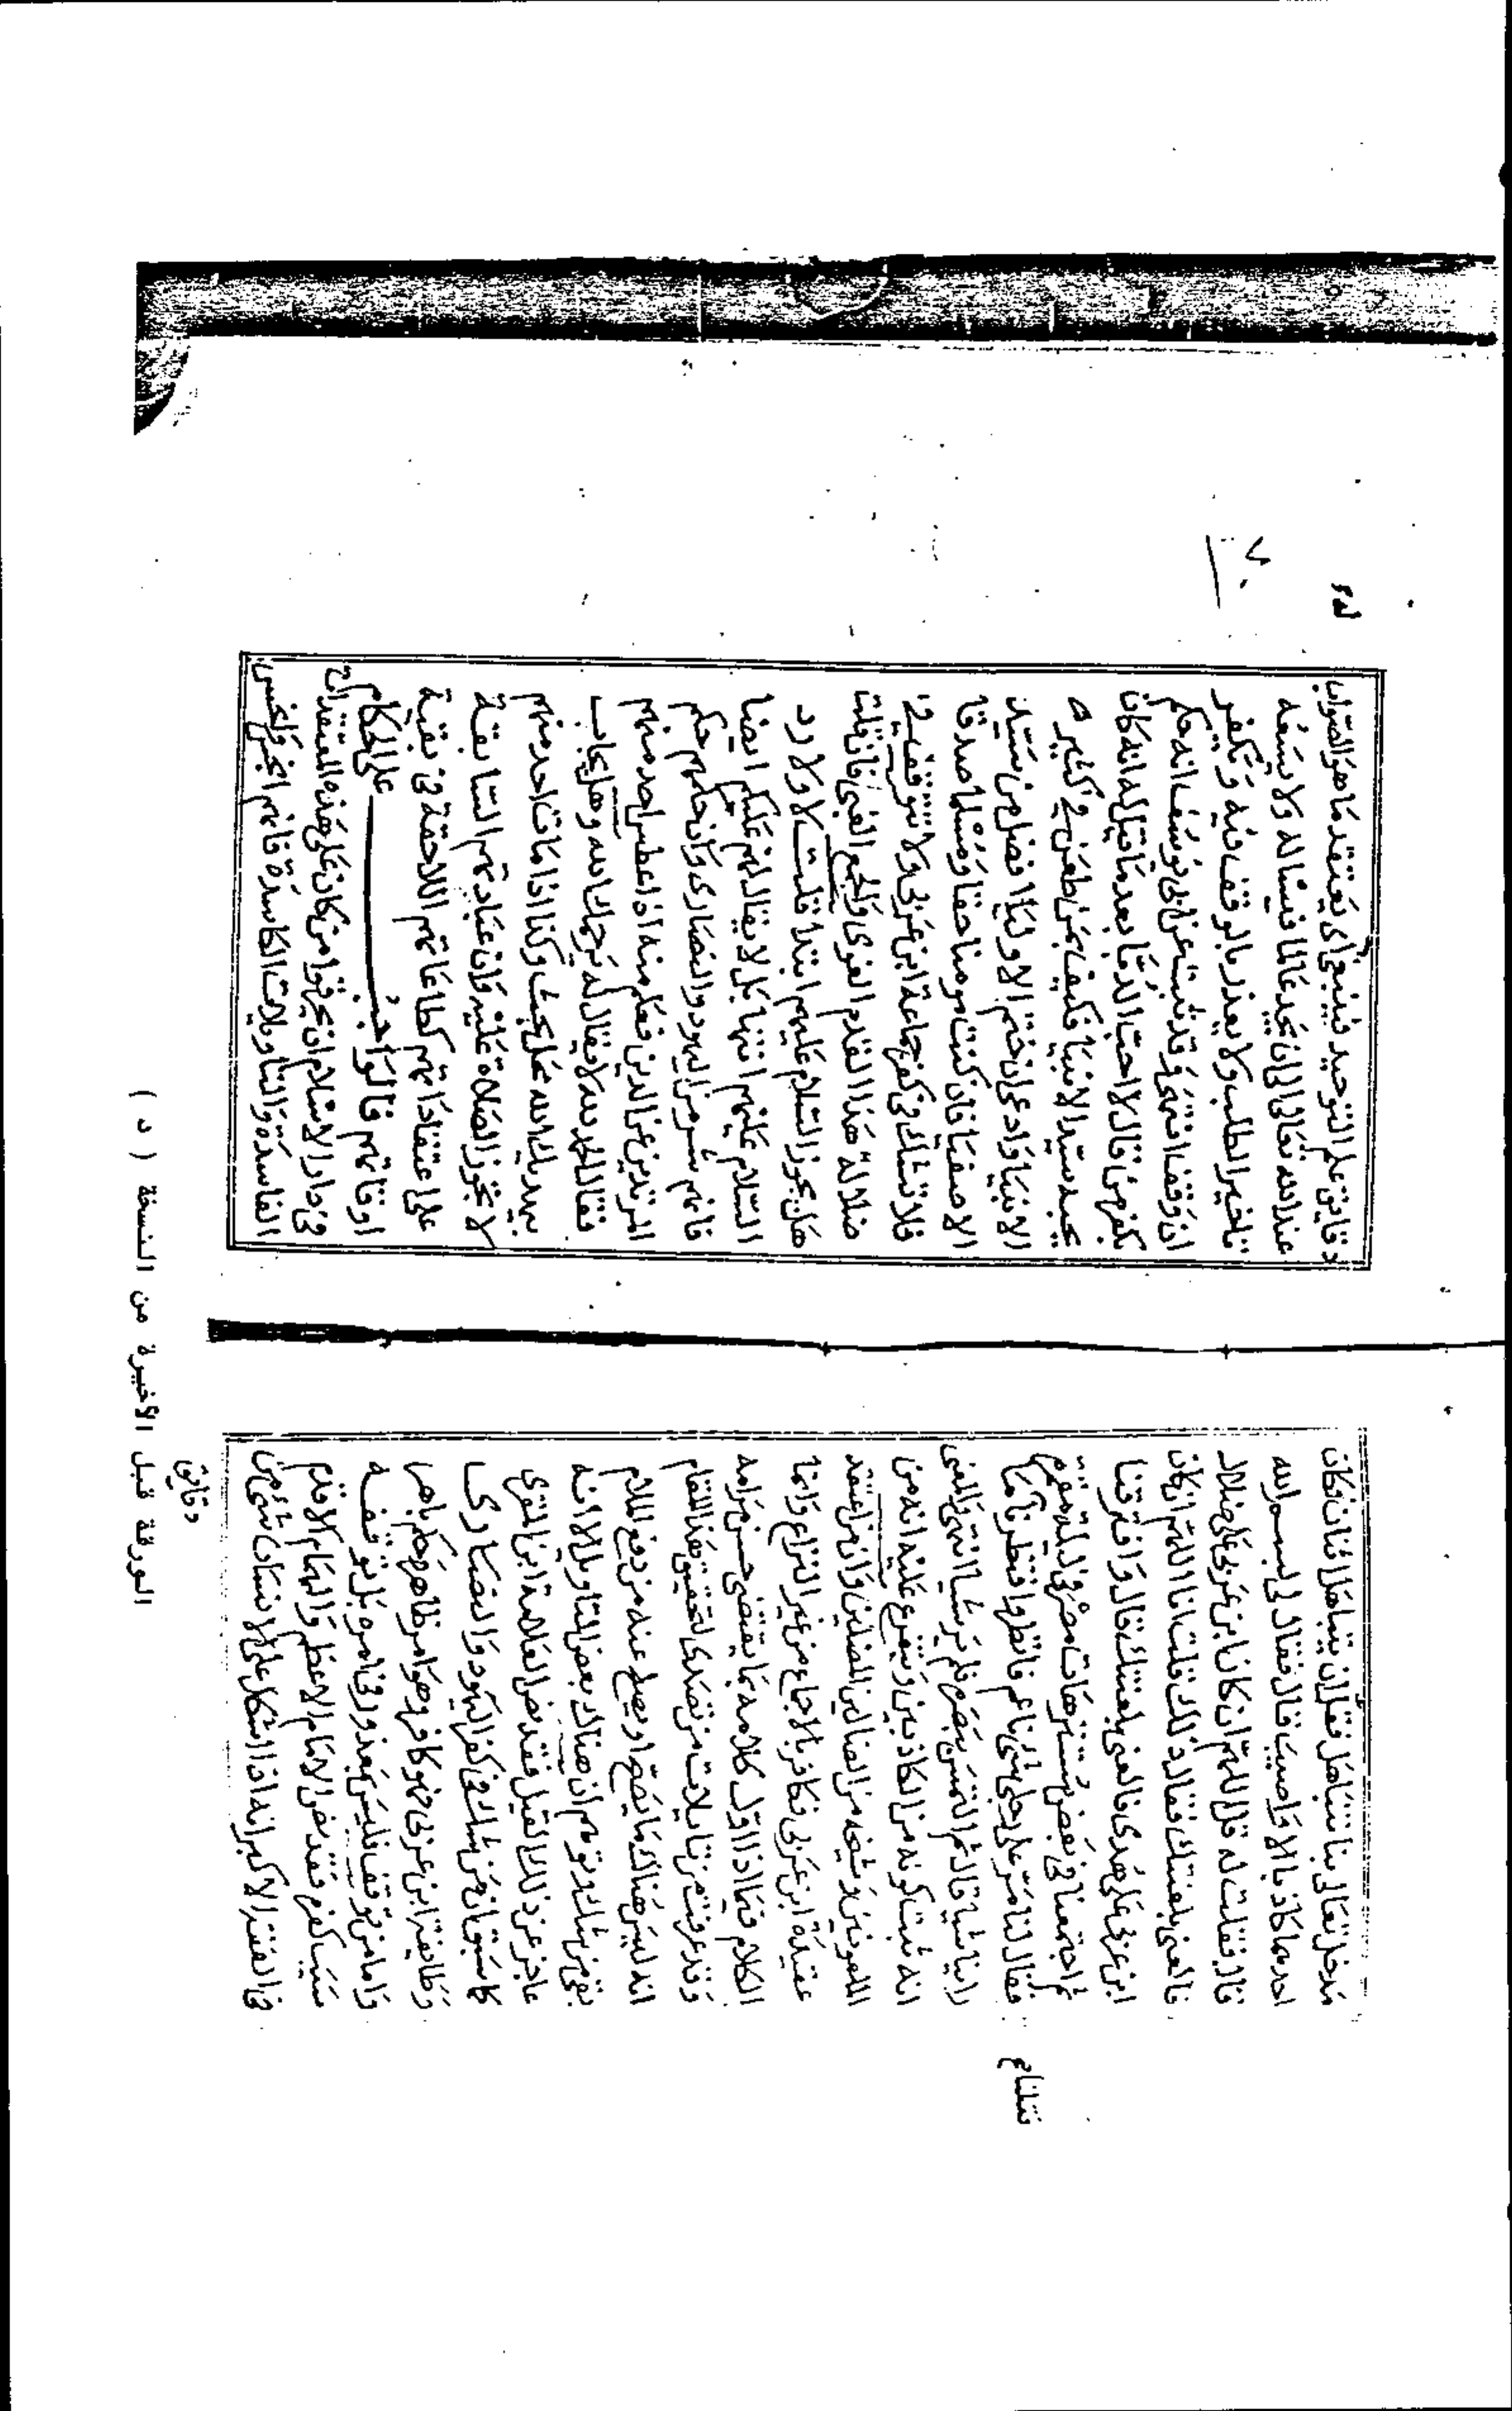 مدخل تعالى بنا نتباهل فقل ان يتباهل اثنان فكان
احدهما كاذبا الا واصيب قال فقال لي بسم الله
قال فقلت له قل اللهم ان كان ابن عربي على ضلال
فالعني بلعنتك فقال ذلك قلت انا اللهم ان كان
ابن عربي على هدى فالعني بلعنتك قال وافترقنا
ثم اجتمعنا في بعض مستنزهات مصر في ليلة مقمرة
فقال لنا مر على رجلي شئ ناعم فانظروا فنظرنا فما
راينا شيئا قال ثم التمس بصره فلم ير شيئا انتهى والمعنى
انه ثبت كونه من الكاذبين ويتفرع عليه انه من
الملعونين وشيخه من الضالين المضلين وان من اعتقد
عقيدة ابن عربي فكافر بالاجماع من غير النزاع وانما
الكلام فيما اذا اول كلامه بما يقتضي حسن مرامه
وقد عرفت من تاويلات من تصدى لتحقيق هذا المقام
انه ليس هناك ما يصح او يصلح عنه من دفع الملام
بقي من شك وتوهم ان هناك بعض التاويل الا انه
عاجز عن ذلك القيل فقد نص العلامة ابن المقري
كما سبق ان من شك في كفر اليهود والنصارى
وطايفة ابن عربي فهو كافر وهو امر ظاهر وحكم باهر
واما من توقف فليس بمعذور في امره بل توقفه
سبب كفره فقد نص الامام الاعظم والهمام الاقدم
في الفقه الاكبر انه اذا اشكل على الانسان شئ من
دقايق
٧٠
دقايق علم التوحيد فينبغي ان يعتقد ما هو الصواب
عند الله تعالى الى ان يجد عالما فيساله ولا يسعه
تاخير الطلب ولا يعذر بالوقف فيه ويكفر
ان وقف انتهى وقد ثبت عن ابي يوسف انه حكم
بكفر من قال لا احب الدبا بعد ما قيل له انه كان
يحبه سيد الانبيا فكيف بمن طعن في كثير
الانبيا وادعى ان ختم الاوليا افضل من سيد
الاصفيا فان كنت مومنا حقا ومسلما صدقا
فلا تشك في كفر جماعة ابن عربي ولا تتوقف في
ضلالة هذا القدم الغوى والجمع الغبى فان قلت
هل يجوز السلام عليهم ابتدا قلت لا ولا رد
السلام عليهم انتها بل لا يقال لهم عليكم ايضا
فانهم شر من اليهود والنصارى وان حكمهم حكم
المرتدين عن الدين فعلم منه اذا عطس احد منهم
فقال الحمد لله لا يقال له يرحمك الله وهل يجاب
بيهديك الله محل بحث وكذا اذا مات احد منهم
لا تجوز الصلاة عليه وان عباداتهم السابقة
على اعتقاداتهم كطاعاتهم اللاحقة في بقية
اوقاتهم فالواجب على الحكام
في دار الاسلام ان يحرقوا من كان على هذه المعتقدات
الفاسدة والتاويلات الكاسدة فانهم انجس وانجس
الورقة قبل الأخيرة من النسخة ( د )